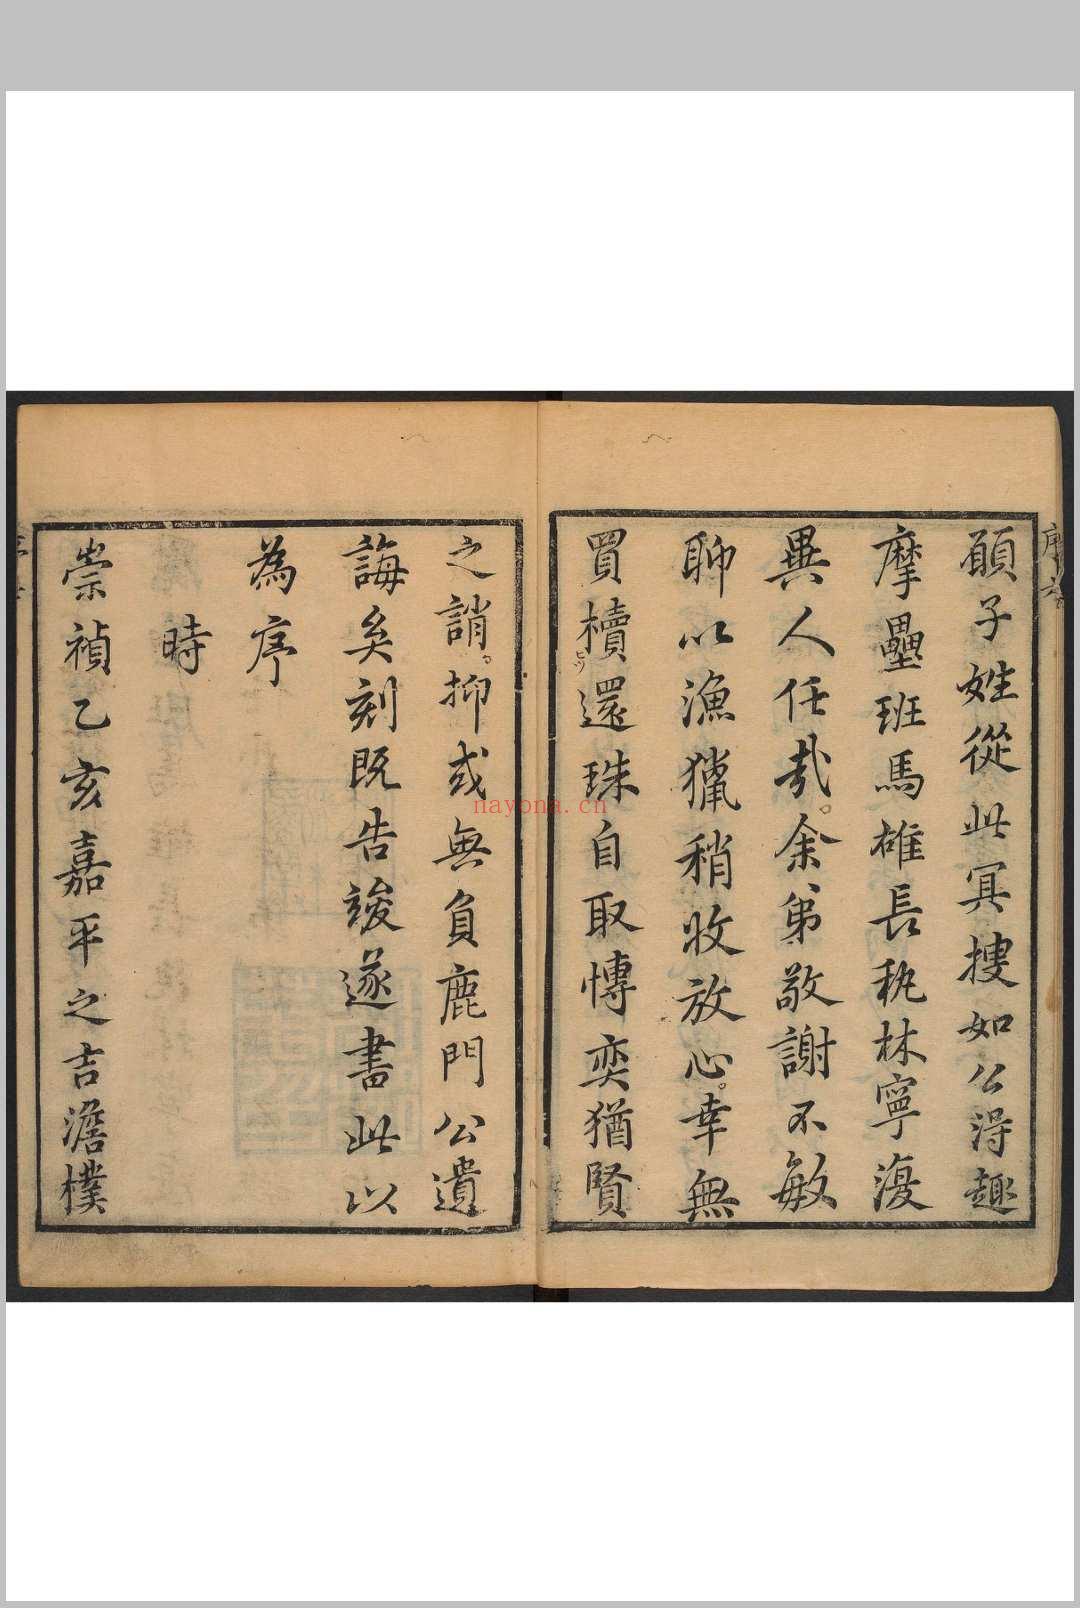 序六
願子姓從此冥搜如公淂趣
摩壘班馬雄長秇林寧澓
異人任哉。余弟敬謝不敏
聊以漁獵稍收放心。幸無
買櫝還珠自取慱奕猶賢
之誚。抑或無負鹿門公遺
誨矣刻既告竣遂書此以
為序
時
崇禎乙亥嘉平之吉澹樸
nayona.cn